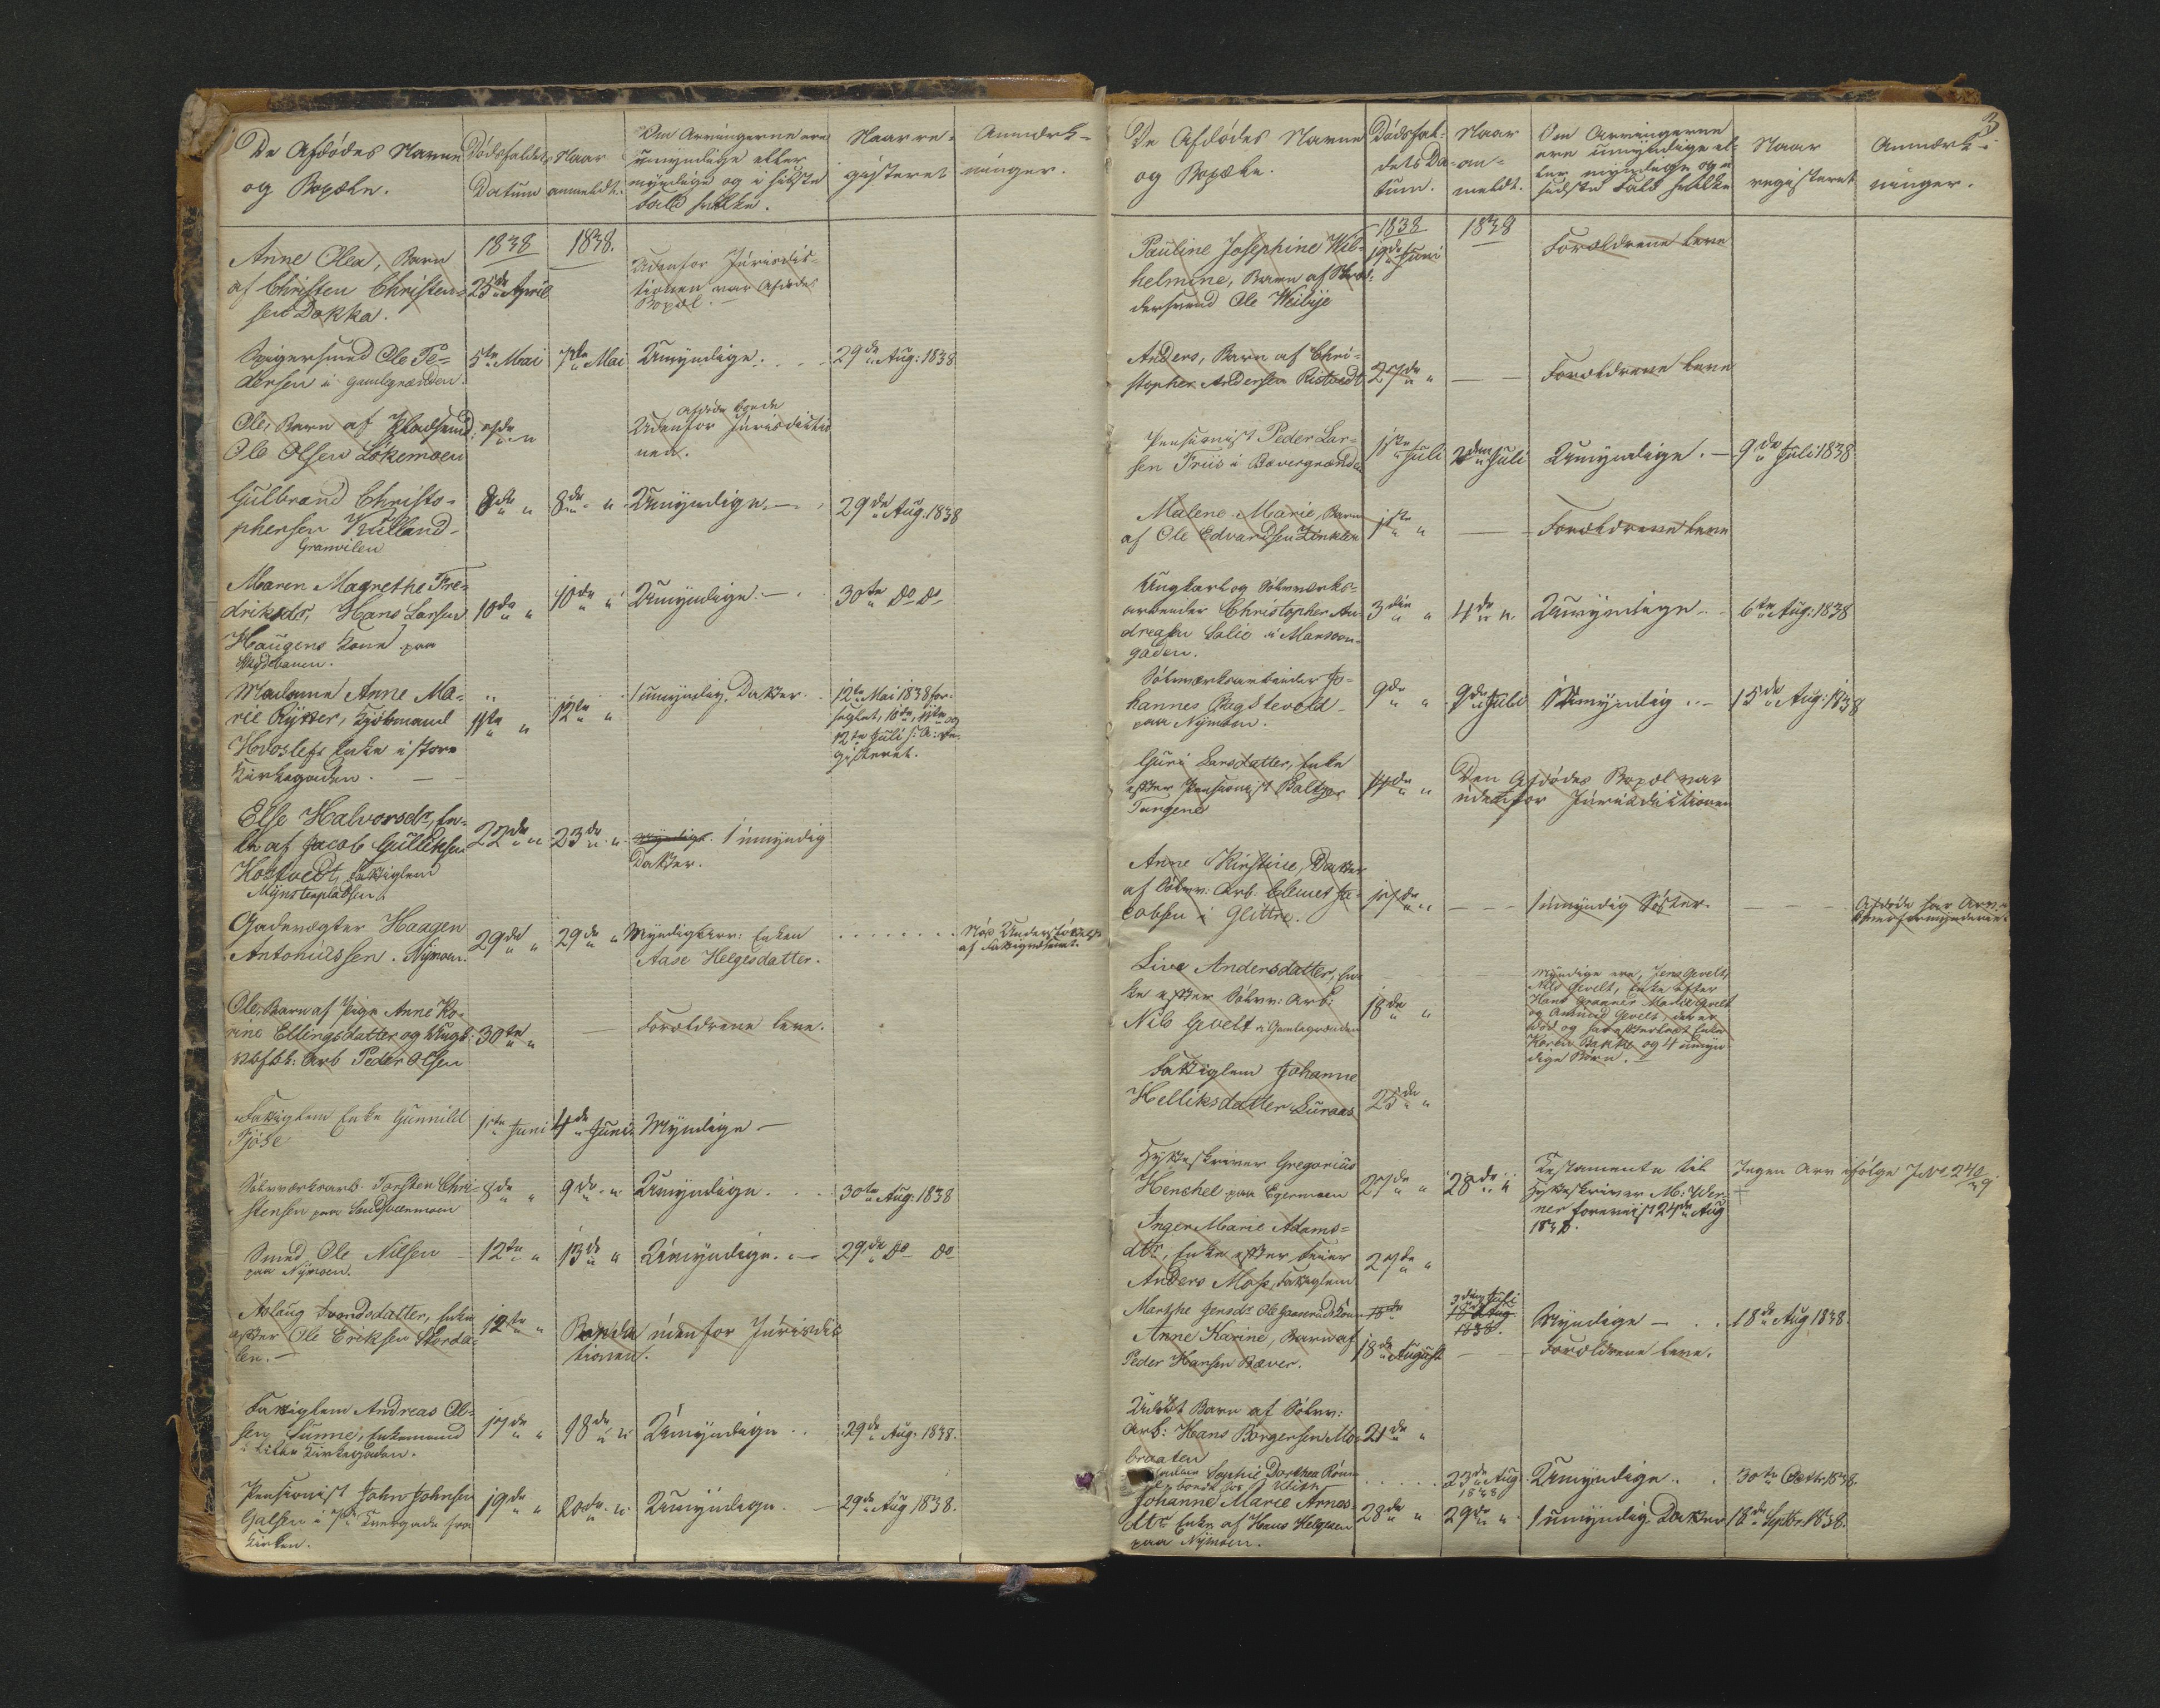 De Afdødes Navne
og Bopæle.
Dødsfaldets
Datum
Naar
anmeldt.
Om Arvingerne ere
umyndige eller
myndige og i sidste
Fald hvilke.
Naar re-
gisteret
Anmærk-
ninger.
1838
1838.
Anne Olea, Barn
af Christen Christen-
sen Dokka.
25de April
Udenfor Jurisdic-
tionen var Afdødes
Bopæl.
Spigersmed Ole Pe-
dersen i Gamlegrænden
5te Mai
7de Mai
Umyndige.
29de Aug: 1838
Ole, Barn af
Ole Olsen Løkemoen
7de "
Afdøde boede
Udenfor Jurisdictio
nen.
Gulbrand Christo-
phersen Kulland-
Granvilen
8de "
8de "
Umyndige.
29de Aug. 1838
Maren Magrethe Fre-
driksdr, Hans Larsen
Haugens Kone paa
Skydebanen.
10de "
10de "
Umyndige.
30te do do
Madame Anne Ma-
rie Rytter, Kjøbmand
Hvoslefs Enke i store
Kirkegaden.
11te "
12te "
1 umyndig Datter.
12te Mai 1838 for-
seglet, 10de, 11te og
12te Juli s: A: re-
gisteret.
Else Halvorsdr, En-
ke af Jacob Gulliksen
Kostvedt, Fattiglem
Myntenpladsen.
22de "
23de "
Myndige. 1 umyndig
Datter.
Gadevægter Haagen
Antoniussen. Nymoen.
29de "
29de "
Myndig Arv: Enken
Aase Helgesdatter.
Nød Understøttelse
af Fattigvæsenet.
Ole, Barn af Pige Anne Ka-
rine Ellingsdatter og Ungk:
Arb Peder Olsen
30te "
Forældrene leve.
Fattiglem Enke Gunnild
Fjøse
1ste Juni
4de Juni.
Myndige
Sølvværksarb. Torsten Chri-
stensen paa Sandsværmoen
8de "
9de "
Umyndige.
30te Aug. 1838
Smed Ole Nilsen
paa Nymoen.
12te "
13de "
Umyndige.
29de do do
Aslaug Trondsdatter, Enke
efter Ole Eriksen Skorda-
len.
12te "
Boende udenfor Jurisdic
tionen.
Fattiglem Andreas Ol-
sen Sunne, Enkemand
i lille Kirkegaden.
17de "
18de "
Umyndige
29de Aug. 1838.
Pensionist John Johnsen
Galsen i 7de Tvergade fra
Kirken.
19de "
20de "
Umyndige.
29de Aug 1838.
3
De Afdødes Navne
og Bopæle.
Dødsfal-
dets Da-
tum.
Naar
an-
meldt.
Om Arvingerne
ere umyndige el-
ler myndige og i
sidste Fald hvilke
Naar
registeret
Anmærk-
ninger.
1838
1838
Pauline Josephine Wil-
helmine, Barn af Skræd-
dersvend Ole Weibye
19de Juni
Forældrene leve
Anders, Barn af Chri-
stopher Andersen Ristvedt
27de "
Forældrene leve
Pensionist Peder Lar-
sen Friis i Bævergrænden
1ste Juli
2den Juli
Umyndige.
9de Juli 1838
Malene Marie, Barn
af Ole Edvardsen Zinklar
1ste "
Forældrene leve
Ungkarl og Sølvværks-
arbeider Christopher An
dreasen Salie i Mansoon-
gaden.
3die "
4de "
Umyndige
6te Aug. 1838
Sølvværksarbeider Jo-
hannes Regstevold
paa Nymoen.
9de "
9de Juli
Umyndig
15de Aug. 1838
Guri Larsdatter, Enke
efter Pensionist Baltzer
Tungene
14de "
Den Afdødes Bopæl var
udenfor Jurisdictionen
Anne Kirstine, Datter
af Sølvv: Arb. Clemet Ja-
cobsen i Glittre.
17de "
1 umyndig Søster.
Afdøde har
Live Andersdatter, En-
ke efter Sølvv: Arb:
Nils Gevelt i Gamlegrænden
18de "
Myndige ere, Jens Gevelt,
Nils Gevelt, Enke efter
Hans Marie Gevelt
og Amund Gevelt, der er
død og har efterladt Enke
Karen Bakke og 4 umyn
dige Børn.
Fattiglem Johanne
Helliksdatter Luraas
25de "
Hytteskriver Gregorius
Henchel paa Egermoen
27de "
28de "
Testamente til
Hytteskriver M. Wer-
ner foreviist 24de Aug
1838.
Ingen Arv ifølge J.No 240/9
Inger Marie Adams-
dtr, Enke efter Feier
Anders Moss, Fattiglem
27de "
Marthe Jensdr Ole Gaaserud's Kone
18de
3den Juli
18de Aug
1838.
Myndige
18de Aug 1838.
Anne Karine, Barn af
Peder Hansen Bæver.
18de August
Forældrene leve.
Udøbt Barn af Sølvv:
Arb: Hans Børgersen Mo-
braaten
21de "
Sophie Dorthea
23de Aug.
1838
Umyndige.
30te Octbr. 1838.
Johanne Marie Arnes-
dtr Enke af Hans Helgesen
paa Nymoen.
28de "
29de "
1 umyndig Datter
18de Septbr. 1838.